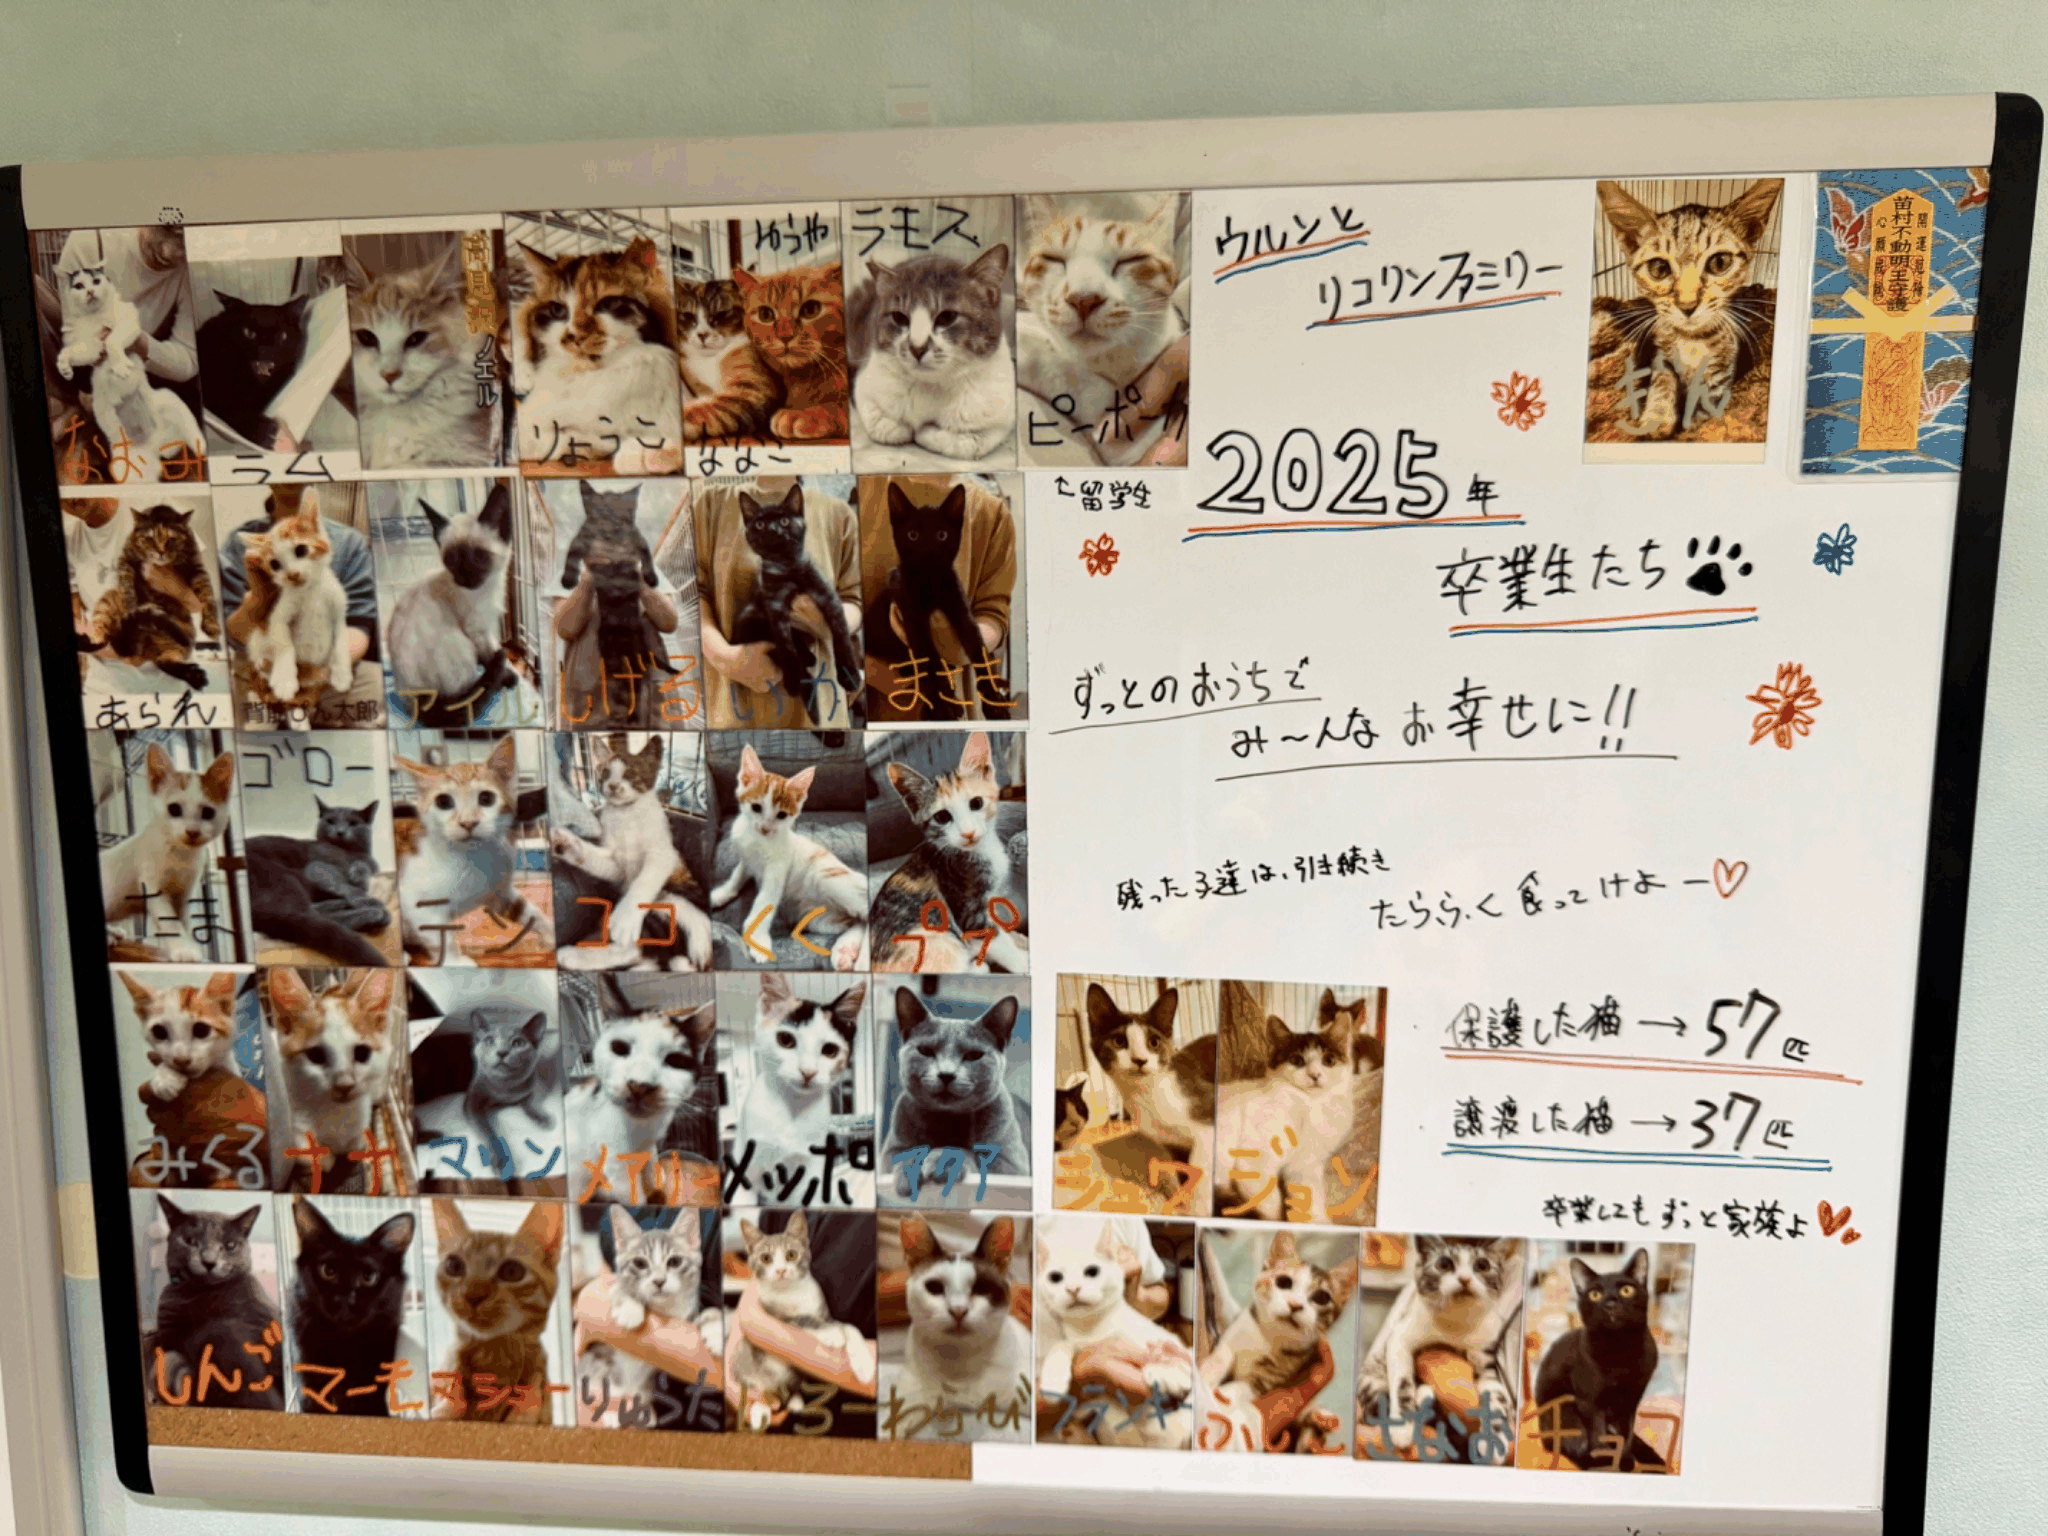 なおみ
ラム
高見沢ノエル
りょうこ
ゆうや
ななこ
ラモス
ピーポー
↑留学生
ウルンと
リコリンファミリー
苗村不動明王守護
開運
心願
2025年
卒業生たち
ずっとのおうちで
み〜んなお幸せに!!
あられ
背筋ぴん太郎
アイル
しげる
まさき
たま
ゴロー
テン
ココ
くく
ププ
残った子達は、引き続き
たらふく食ってけよー♡
みくる
ナナ
マリン
メアリー
メッポ
アクア
シュワ
ジョン
保護した猫→57匹
譲渡した猫→37匹
卒業してもずっと家族よ
しんご
マーモ
マシュー
りゅうた
じろー
わらび
フランキー
ふじこ
さなお
チョコ